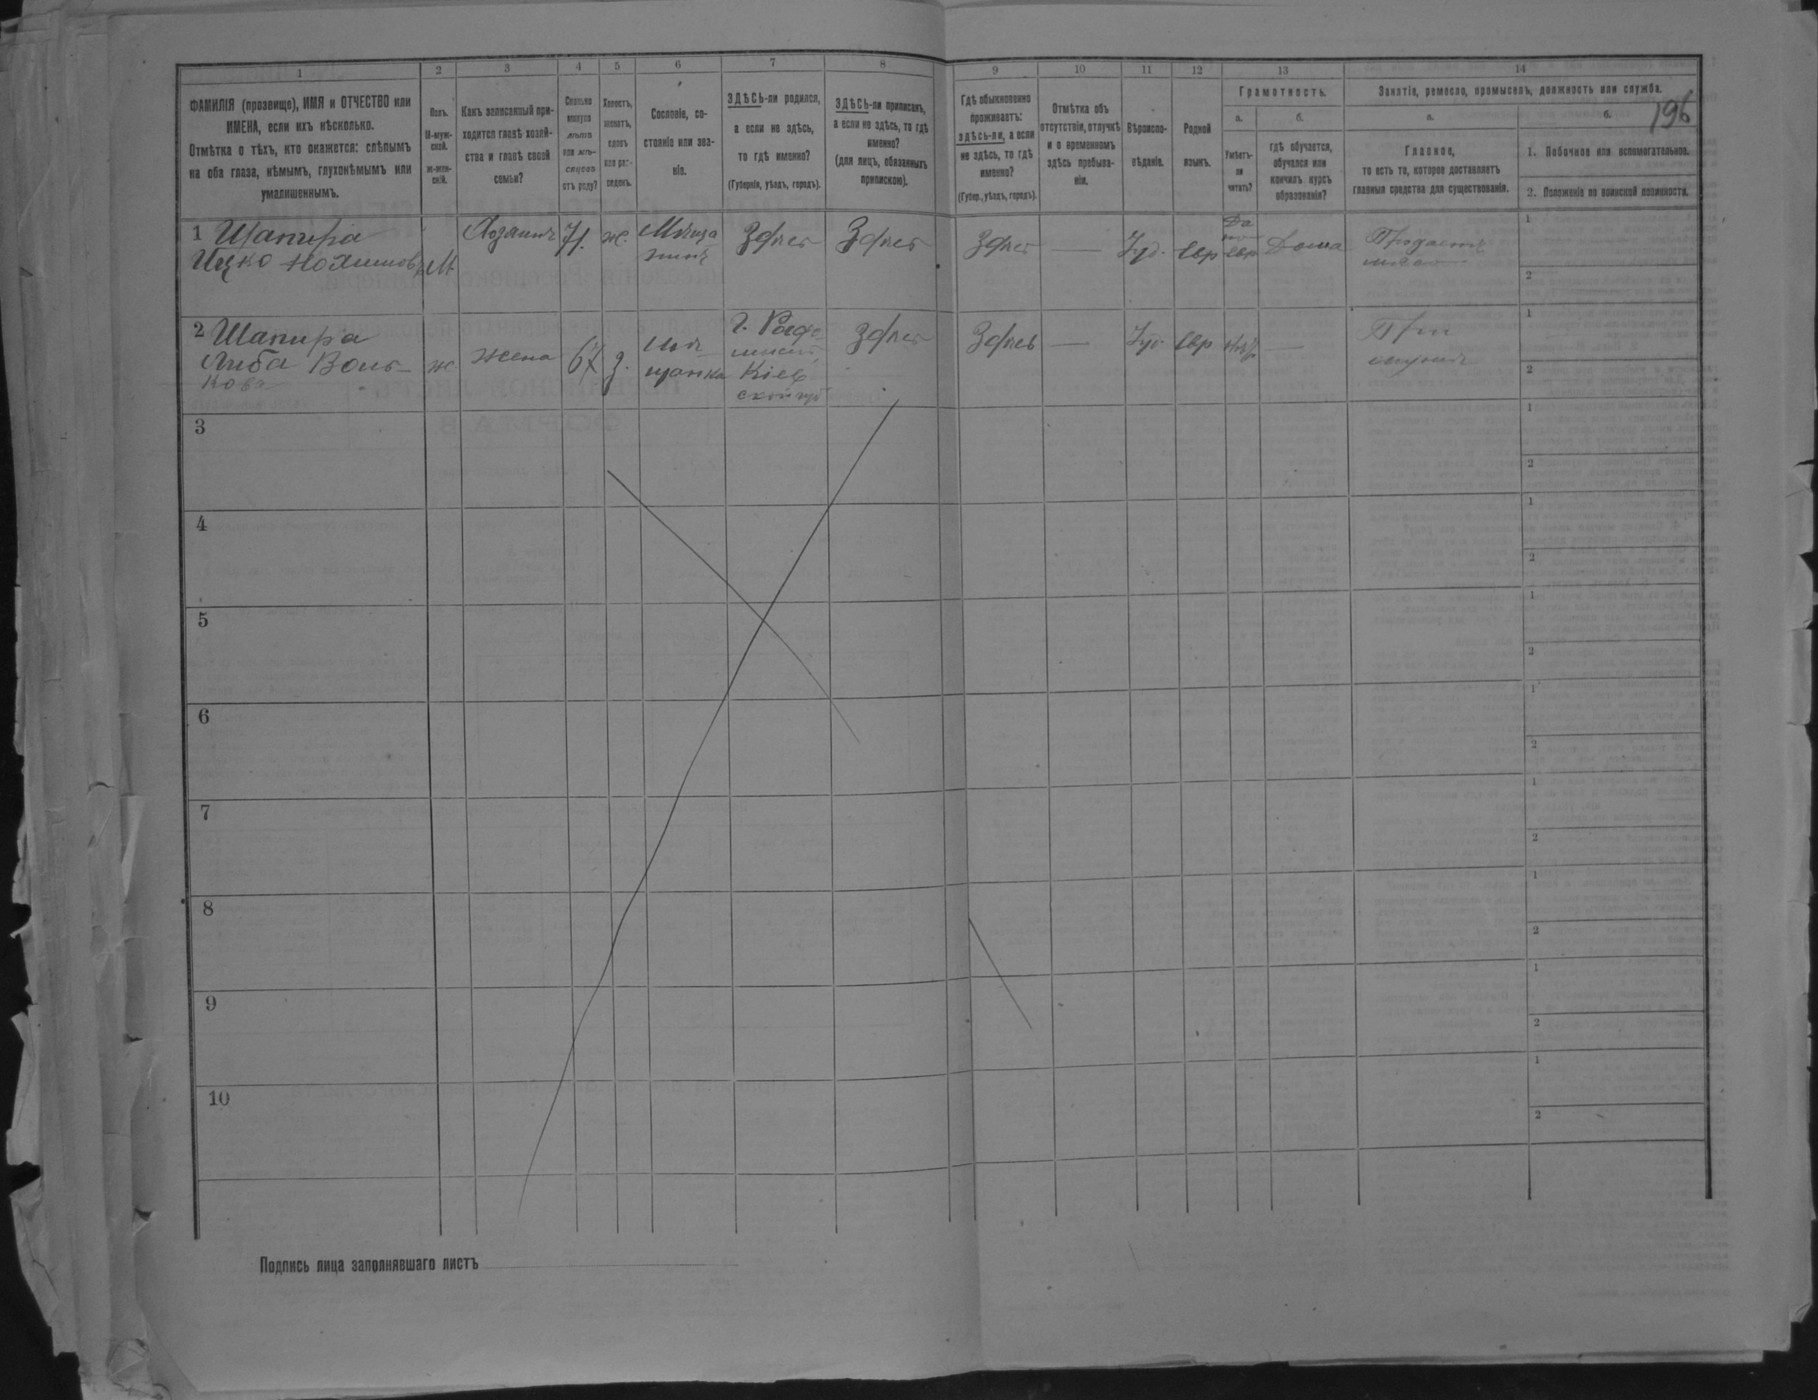 196
1 2 3 4 5 6 7 8 9 10 11 12 13 14
ФАМИЛІЯ (прозвище), ИМЯ и ОТЧЕСТВО или
ИМЕНА, если ихъ нѣсколько.
Отмѣтка о тѣхъ, кто окажется: слѣпымъ
на оба глаза, нѣмымъ, глухонѣмымъ или
умалишеннымъ.
Полъ.
М-муж-
ской.
Ж-жен-
скій.
Какъ записанный при-
ходится главѣ хозяй-
ства и главѣ своей
семьи?
Сколько
минуло
лѣтъ
или мѣ-
сяцевъ
отъ роду?
Холостъ,
женатъ,
вдовъ
или раз-
веденъ.
Сословіе, со-
стояніе или зва-
ніе.
ЗДѢСЬ-ли родился,
а если не здѣсь,
то гдѣ именно?
(Губернія, уѣздъ, городъ).
ЗДѢСЬ-ли приписанъ,
а если не здѣсь, то гдѣ
именно?
(для лицъ, обязанныхъ
припискою).
Гдѣ обыкновенно
проживаетъ:
здѣсь-ли, а если
не здѣсь, то гдѣ
именно?
(Губер., уѣздъ, городъ).
Отмѣтка объ
отсутствіи, отлучкѣ
и о временномъ
здѣсь пребыва-
ніи.
Вѣроиспо-
вѣданіе.
Родной
языкъ.
Грамотность.
а.
Умѣетъ-
ли
читать?
б.
гдѣ обучается,
обучался или
кончилъ курсъ
образованія?
Занятіе, ремесло, промыселъ, должность или служба.
а.
Главное,
то есть то, которое доставляетъ
главныя средства для существованія.
б.
1. Побочное или вспомогательное.
2. Положеніе по воинской повинности.
1 Шапира
Ицко
М
Хозяинъ
71
ж.
Мѣща
нинъ
Здѣсь
Здѣсь
Здѣсь
—
Іуд.
Евр
Да
по
евр
Дома
1
2
2 Шапира
Либа Воль-
кова
ж
Жена
67
з.
щанка
Кіев
ской губ
Здѣсь
Здѣсь
—
Іуд
Евр
—
1
2
3
1
2
4
1
2
5
1
2
6
1
2
7
1
2
8
1
2
9
1
2
10
1
2
Подпись лица заполнявшаго листъ